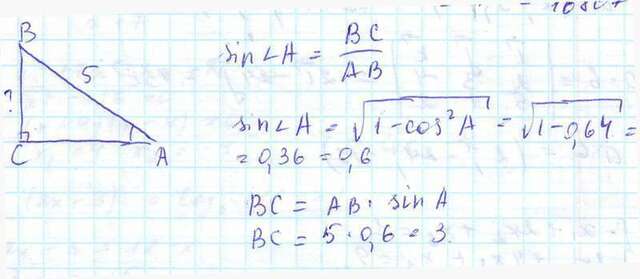 B
5
?
C
A
sin∠A = BC/AB
sin∠A = √(1-cos²A) = √(1-0,64) =
= 0,36 = 0,6
BC = AB · sin A
BC = 5 · 0,6 = 3.